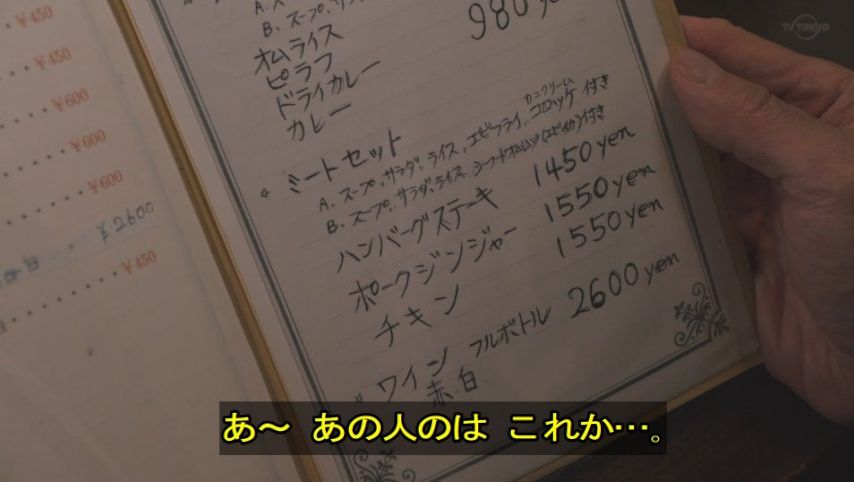 ¥450
¥450
¥600
¥600
¥600
¥2600
¥450
A. スープ、サラダ
B. スープ、サラダ
980 yen
オムライス
ピラフ
ドライカレー
カレー
ミートセット
A. スープ、サラダ、ライス、エビフライ、カニクリームコロッケ 付き
B. スープ、サラダ、ライス、シーフードオムレツ(エビ、イカ)付き
ハンバーグステーキ 1450 yen
ポークジンジャー 1550 yen
チキン 1550 yen
ワイン フルボトル 2600 yen
赤、白
TV TOKYO
あ～ あの人のは これか…。